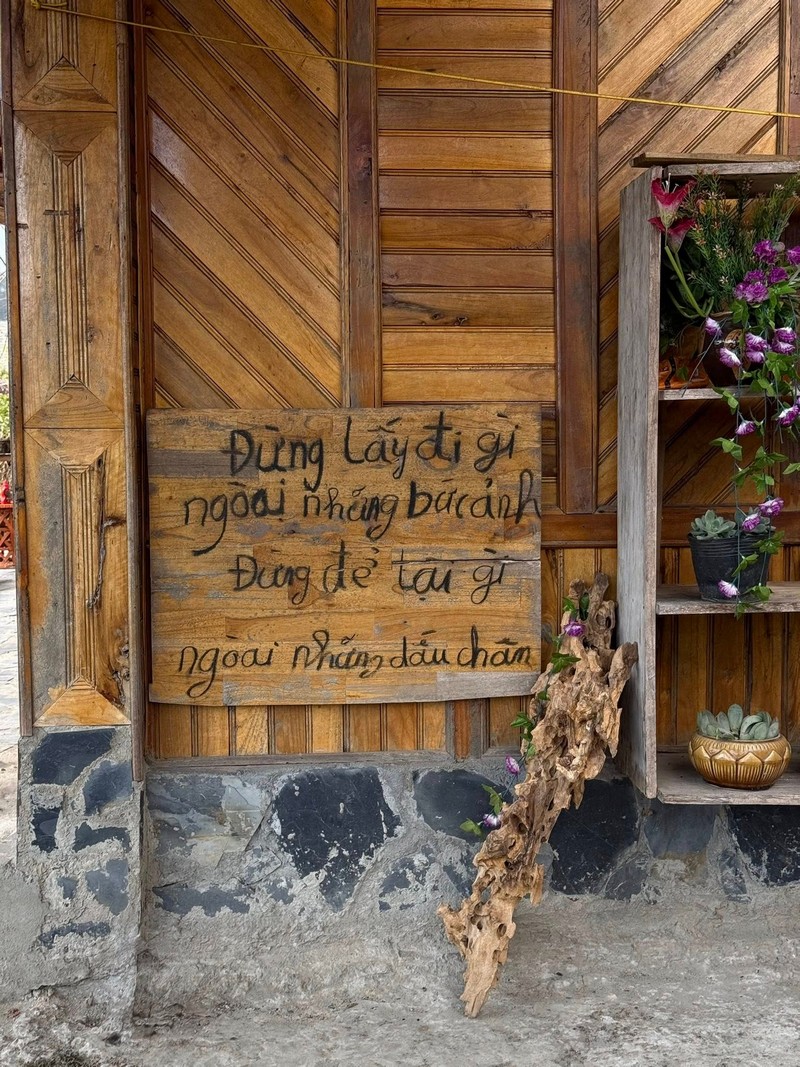 Đừng lấy đi gì
ngoài những bức ảnh
Đừng để lại gì
ngoài những dấu chân